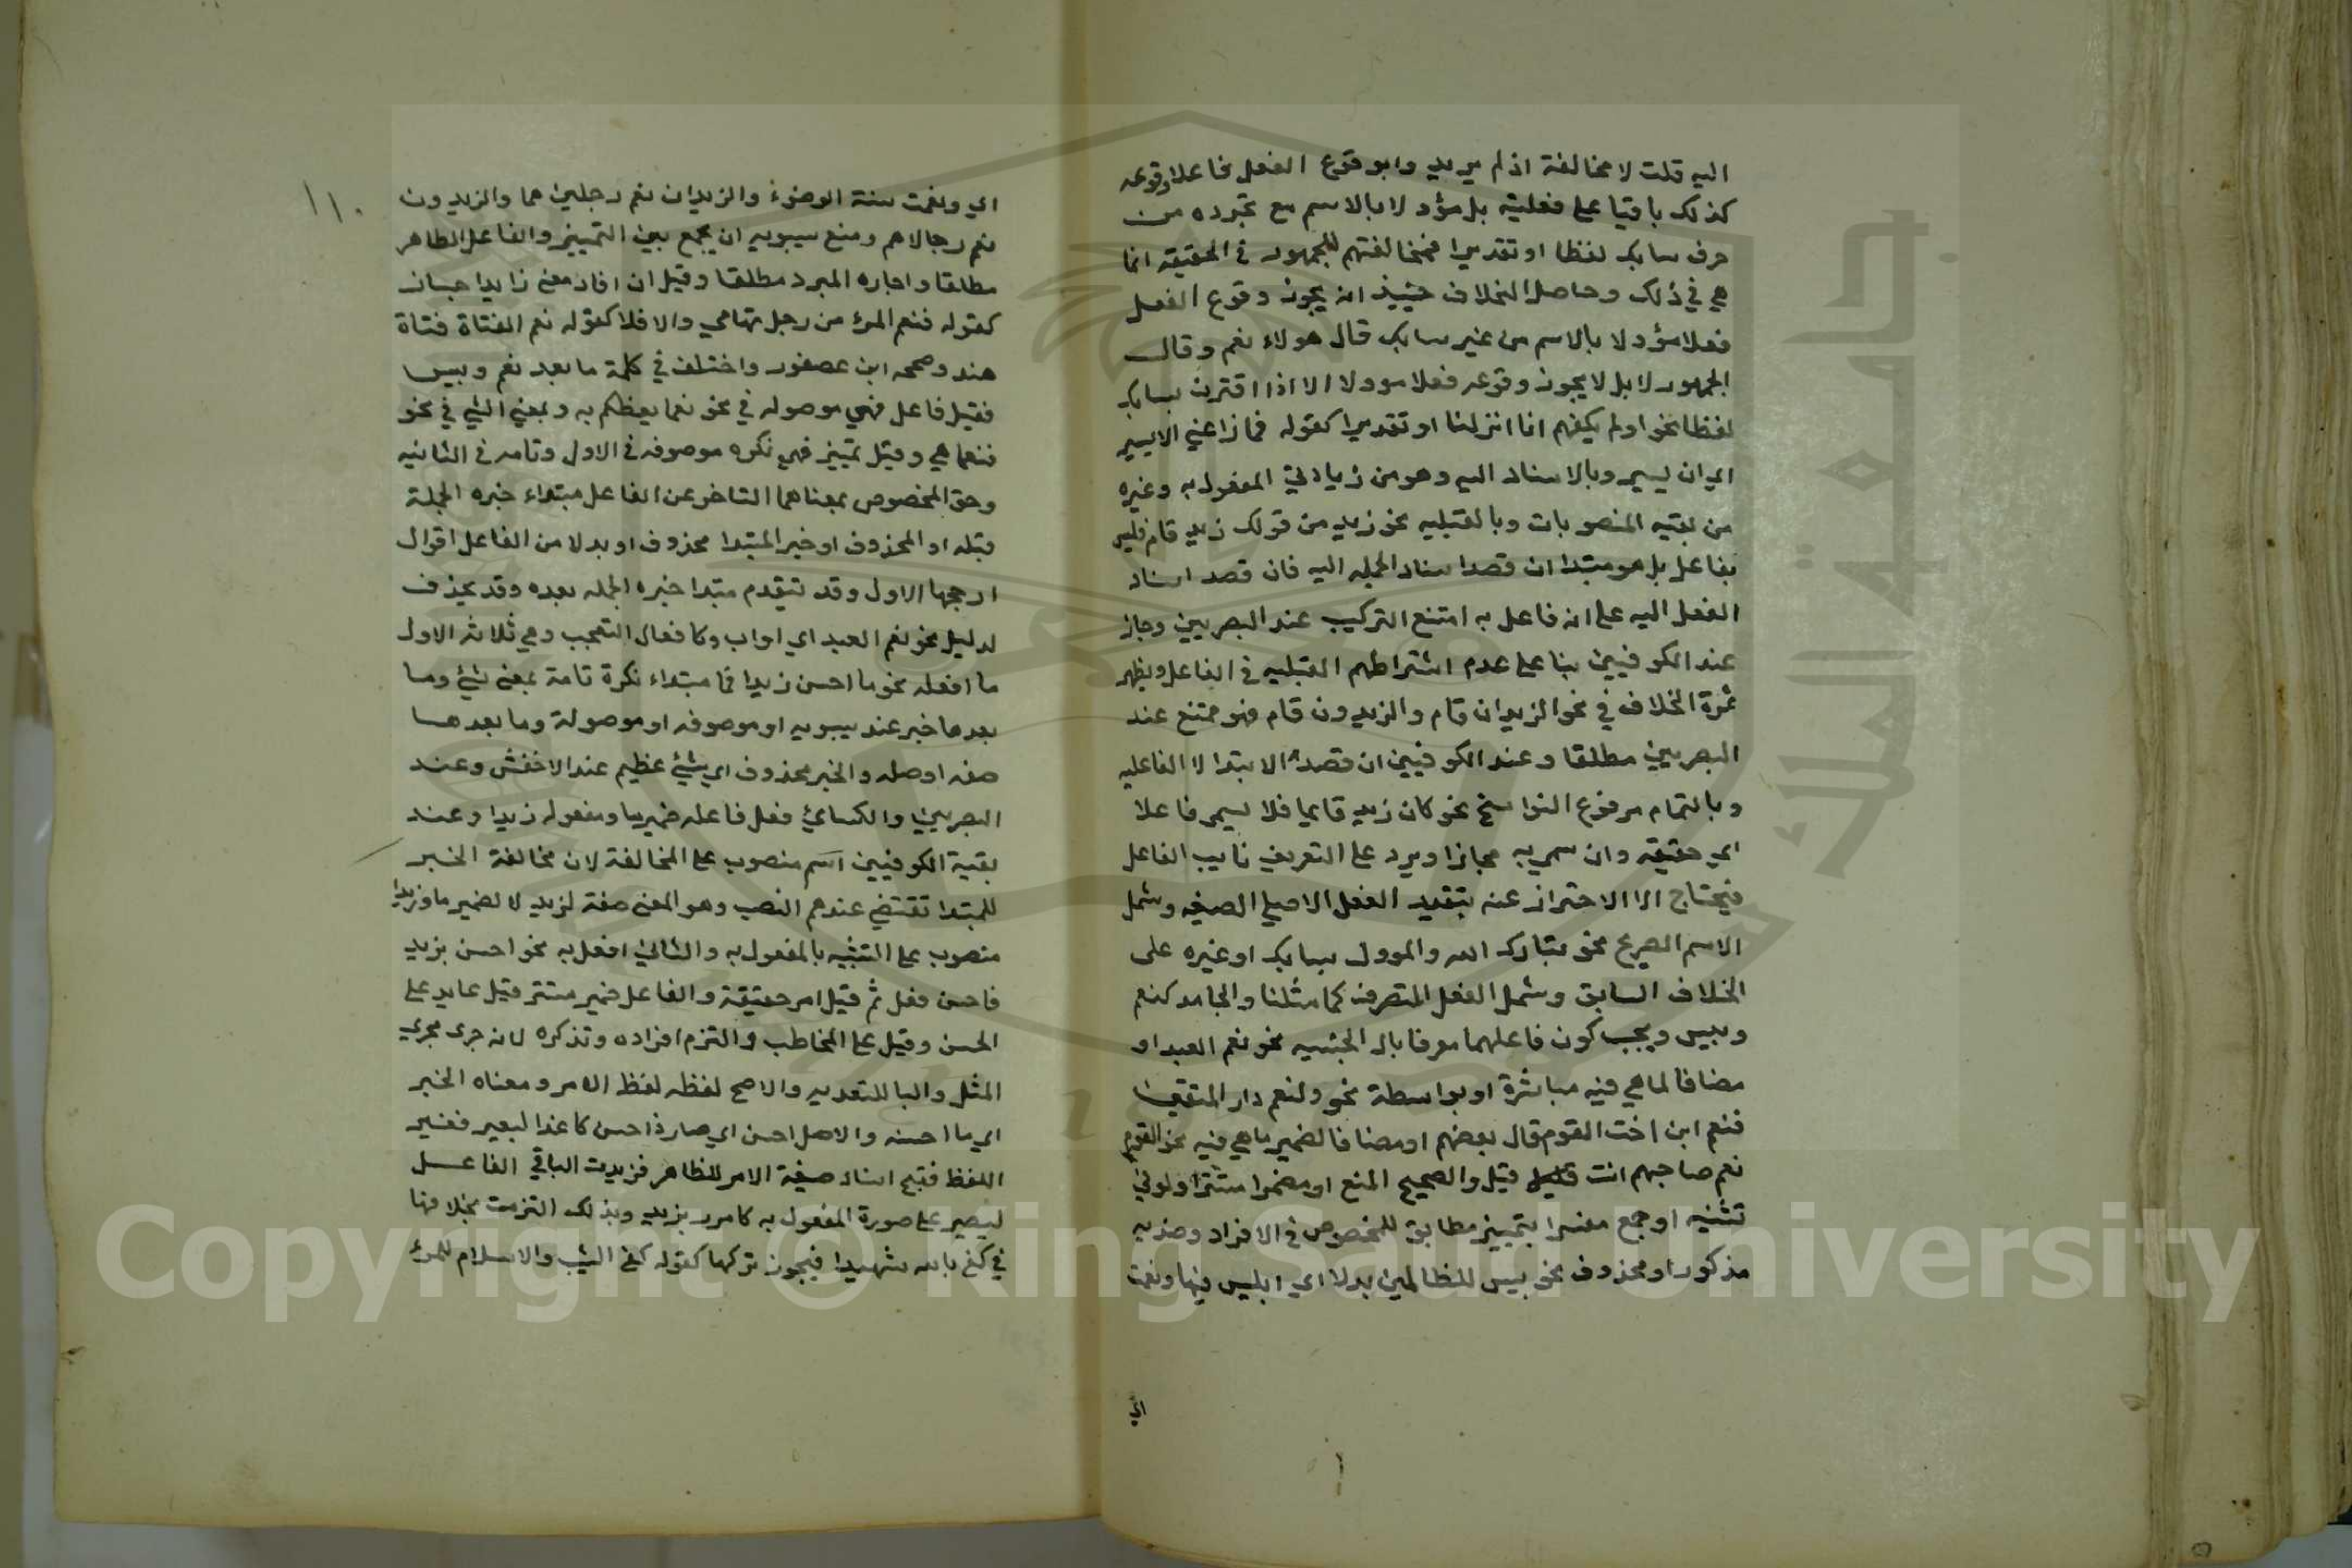 اليه قلت لا مخالفة اذ لم يريدوا بوقوع الفعل فاعلا وقوعه
كذلك باقيا على فعليته بل مؤولا بالاسم مع تجرده من
حرف سابك لفظا او تقديرا فمخالفتهم للجمهور في الحقيقه انما
هي في ذلك وحاصل الخلاف حينيذ انه يجوز وقوع الفعل
فعلا مؤولا بالاسم من غير سابك قال هولاء نعم وقال
الجمهور لا بل لا يجوز وقوعه فعلا موولا الا اذا اقترن بسابك
لفظا نحو اولم يكفهم انا انزلنا او تقديرا كقوله فما زاعني الا يسير
اي ان يسير وبالاسناد اليه وهو من زيادتي المفعول به وغيره
من بقيه المنصوبات وبالقبليه نحو زيد من قولك زيد قام فليس
بفاعل بل هو مبتدا ان قصد اسناد الجمله اليه فان قصد اسناد
الفعل اليه على انه فاعل به امتنع التركيب عند البصريين وجاز
عند الكوفيين بنا على عدم اشتراطهم القبليه في الفاعل ويظهر
ثمرة الخلاف في نحو الزيدان قام والزيدون قام فهو ممتنع عند
البصريين مطلقا وعند الكوفيين ان قصد الابتدا لا الفاعليه
وبالتمام مرفوع النواسخ نحو كان زيد قايما فلا يسمى فاعلا
اي حقيقه وان سمي به مجازا ويرد على التعريف نايب الفاعل
فيحتاج الا الاحتراز عنه بتقييد الفعل الاصلي الصيغه وشمل
الاسم الصريح نحو تبارك الله والموول بسابك او غيره على
الخلاف السابق وشمل الفعل المتصرف كما مثلنا والجامد كنعم
وبيس ويجب كون فاعلهما معرفا بال الجنسيه نحو نعم العبد او
مضافا لما هي فيه مباشرة او بواسطة نحو ولنعم دار المتقين
فنعم ابن اخت القوم قال بعضهم او مضافا لضمير ما هي فيه نحو القوم
نعم صاحبهم انت قيل والصحيح المنع او مضمرا مستترا ولو في
تثنيه او جمع مفسرا بتمييز مطابق للمخصوص في الافراد وضديه
مذكور او محذوف نحو بيس للظالمين بدلا اي ابليس فبها ونعمت
اي
١١٠
اي ونعمت سنة الوضوء والزيدان نعم رجلين هما والزيدون
نعم رجالا هم ومنع سيبويه ان يجمع بين التمييز والفاعل الظاهر
مطلقا واجازه المبرد مطلقا وقيل ان افاد معنى زايدا جاز
كقوله فنعم المرء من رجل تهامي والا فلا كقوله نعم الفتاة فتاة
هند وصححه ابن عصفور واختلف في كلمة ما بعد نعم وبيس
فقيل فاعل فهي موصوله في نحو نعما يعظكم به وبمعنى الشي في نحو
فنعما هي وقيل تمييز فهي نكره موصوفه في الاول وتامه في الثانيه
وحق المخصوص بمعناهما التاخر عن الفاعل مبتداء خبره الجملة
قبله او المحذوف او خبر المبتدا محذوف او بدلا من الفاعل اقوال
ارجحها الاول وقد يتقدم مبتدا خبره الجمله بعده وقد يحذف
لدليل نحو نعم العبد اي ايوب وكافعال التعجب وهي ثلاثه الاول
ما افعله نحو ما احسن زيدا فما مبتداء نكرة تامة بمعنى شيء وما
بعدها خبر عند سيبويه او موصوفه او موصولة وما بعدهسا
صفه او صله والخبر محذوف اي شيء عظيم عند الاخفش وعند
البصريين والكسائي فعل فاعله ضمير ما ومفعوله زيدا وعند
بقية الكوفيين اسم منصوب على المخالفة لان مخالفة الخبر
للمبتدا تقتضي عندهم النصب وهو المعنى صفة لزيد لا لضمير ما وزيدا
منصوب على التشبيه بالمفعول به والثاني افعل به نحو احسن بزيد
فاحسن فعل ثم قيل امر حقيقة والفاعل ضمير مستتر قيل عايد على
الحسن وقيل على المخاطب والتزم افراده وتذكره لانه جرى مجرى
المثل والبا للتعديه والاصح لفظه لفظ الامر ومعناه الخبر
اي ما احسنه والاصل احسن اي صار ذا حسن كاغد البعير فغير
اللفظ فقبح اسناد صيغة الامر للظاهر فزيدت البا في الفاعل
ليصير على صورة المفعول به كامرر بزيد وبذلك التزمت بخلافها
في كفى بالله شهيدا فيجوز تركها كقوله كفى الشيب والاسلام للمرء
Copyright © King Saud University
جامعة الملك سعود